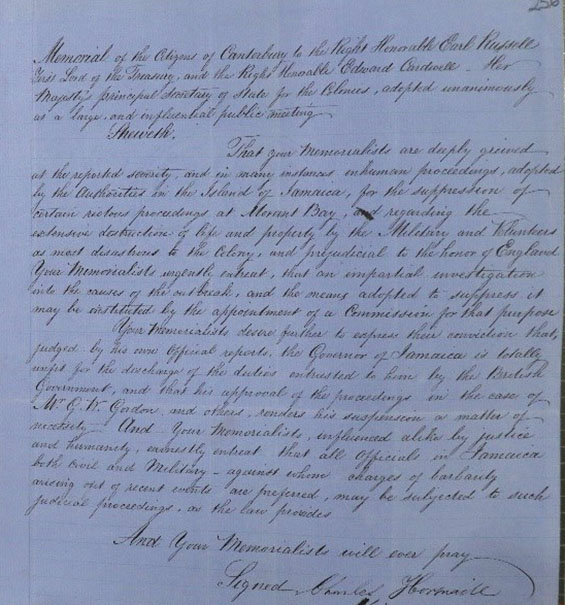 256
Memorial of the Citizens of Canterbury to the Right Honorable Earl Russell
First Lord of the Treasury, and the Right Honorable Edward Cardwell - Her
Majesty's principal Secretary of State for the Colonies, adopted unanimously
at a large, and influential public meeting
Sheweth.
That your Memorialists are deeply grieved
at the reported severity, and in many instances inhuman proceedings, adopted
by the Authorities in the Island of Jamaica, for the suppression of
certain riotous proceedings at Morant Bay, and regarding the
extensive destruction of life and property by the Military and Volunteers
as most disastrous to the Colony, and prejudicial to the honor of England
Your Memorialists urgently entreat, that an impartial investigation
into the causes of the outbreak, and the means adopted to suppress it
may be instituted by the appointment of a Commission for that purpose
Your Memorialists desire further to express their conviction that,
judged by his own Official reports, the Governor of Jamaica is totally
unfit for the discharge of the duties entrusted to him by the British
Government, and that his approval of the proceedings in the case of
Mr G. W. Gordon, and others, renders his suspension a matter of
necessity - And - Your Memorialists, influenced alike by justice
and humanity, earnestly entreat that all Officials in Jamaica
both Civil and Military - against whom charges of barbarity
arising out of recent events are preferred, may be subjected to such
judicial proceedings, as the law provides
And Your Memorialists will ever pray
Signed Charles